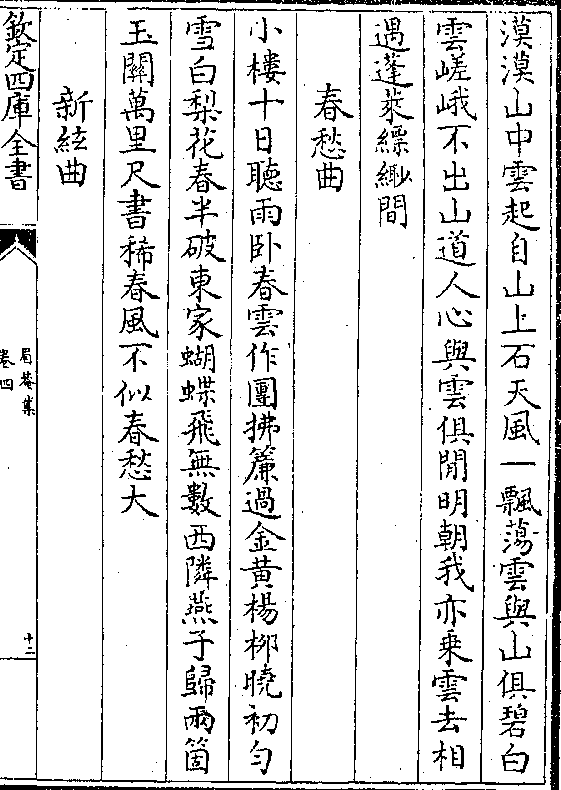 漠漠山中雲起自山上石天風一飄蕩雲與山俱碧白
雲嵯峨不出山道人心與雲俱閒明朝我亦乗雲去相
遇蓬萊縹緲間
春愁曲
小樓十日聽雨卧春雲作團拂簾過金黄楊栁曉初勻
雪白梨花春半破東家蝴蝶飛無數西隣燕子歸兩箇
玉關萬里尺書稀春風不似春愁大
新絃曲
欽定四庫全書
卷四
十二